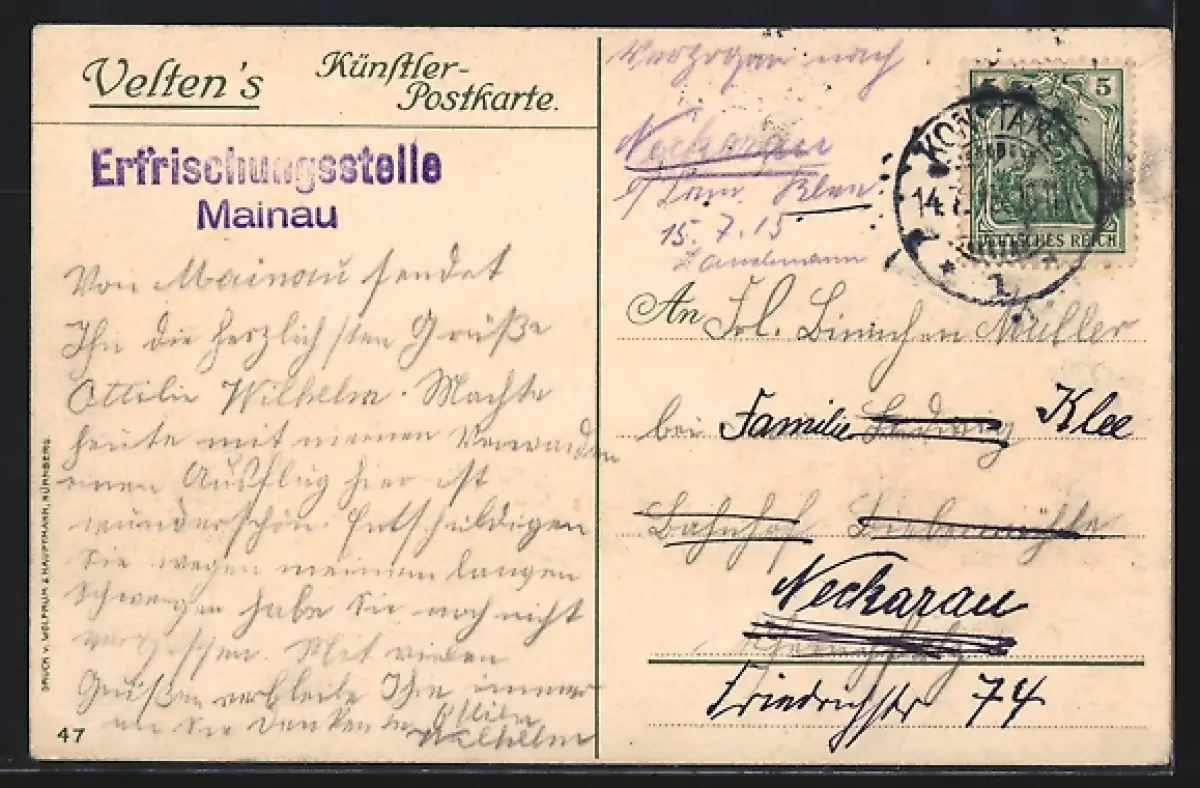 Velten's
Künstler-
Postkarte.
Erfrischungsstelle
Mainau
Von Mainau sendet
Ihn die herzlichsten Grüße
Ottilie Wilhelm. Machte
heute mit meinen Verwanden
einen Ausflug hier ist
wunderschön. Entschuldigen
Sie wegen meinem langen
Schweigen habe Sie noch nicht
vergessen. Mit vielen
Grüßen verbleibe Ihre immer
an Sie denkende Ottilie
Wilhelm
47
DRUCK V. WOLFRUM & HAUPTMANN, NÜRNBERG
Verzogen nach
Neckarau
Klee
15.7.15
5 5
DEUTSCHES REICH
KONSTANZ
14.7.
1
An Frl. Binchen Müller
bei Familie Ludwig Klee
Bahnhof
Neckarau
Friedrichstr 74